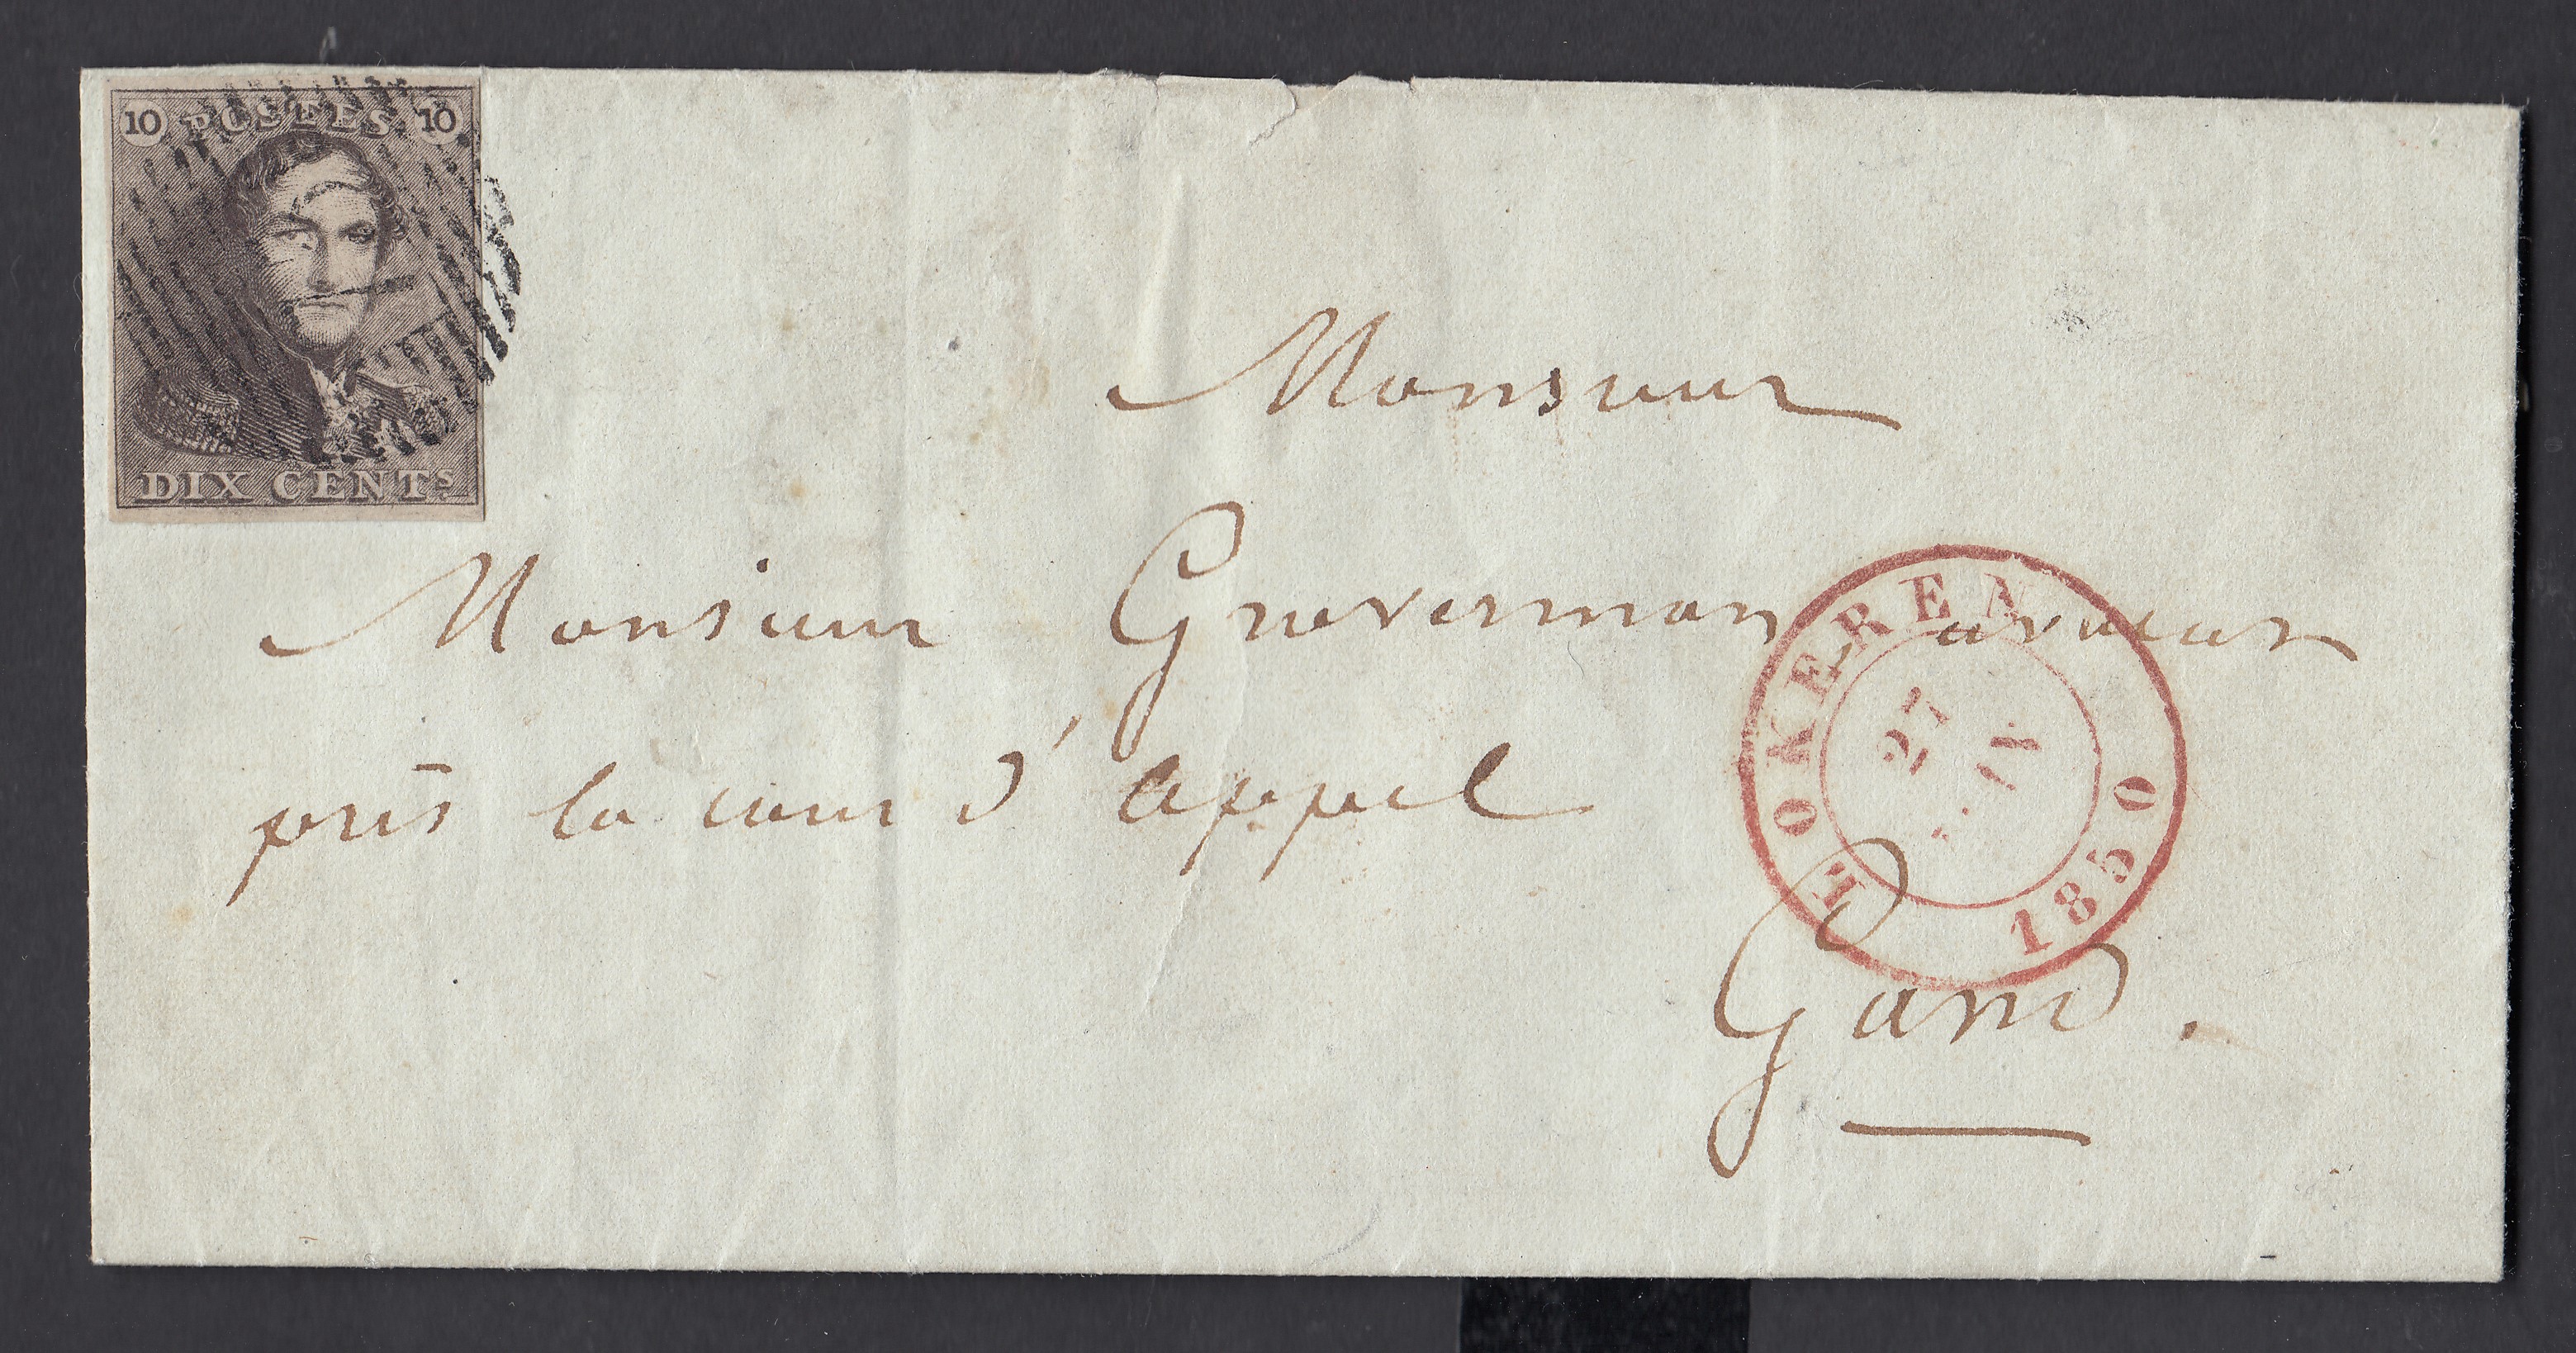 10 POSTES 10
DIX CENTS
Monsieur
Monsieur Greverman avoué
près la cour d'appel
Gand.
LOKEREN
27
1850